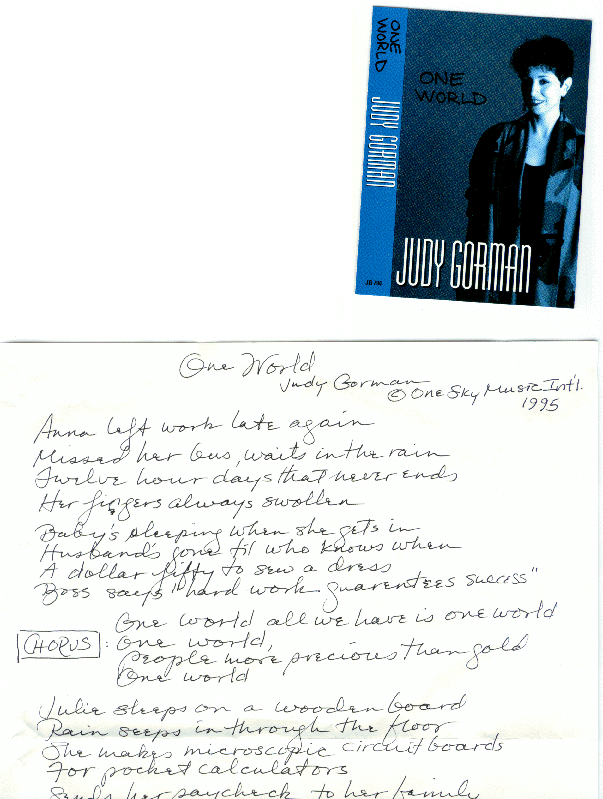 ONE WORLD
JUDY GORMAN
ONE
WORLD
JUDY GORMAN
One World
Judy Gorman
© One Sky Music Int'l.
1995
Anna left work late again
Missed her bus, waits in the rain
Twelve hour days that never ends
Her fingers always swollen
Baby's sleeping when she gets in
Husband's gone til who knows when
A dollar fifty to sew a dress
Boss says "hard work guarentees success"
One world all we have is one world
CHORUS: One world,
People more precious than gold
One world
Julie sleeps on a wooden board
Rain seeps in through the floor
She makes microscopic circuit boards
For pocket calculators
Sends her paycheck to her family